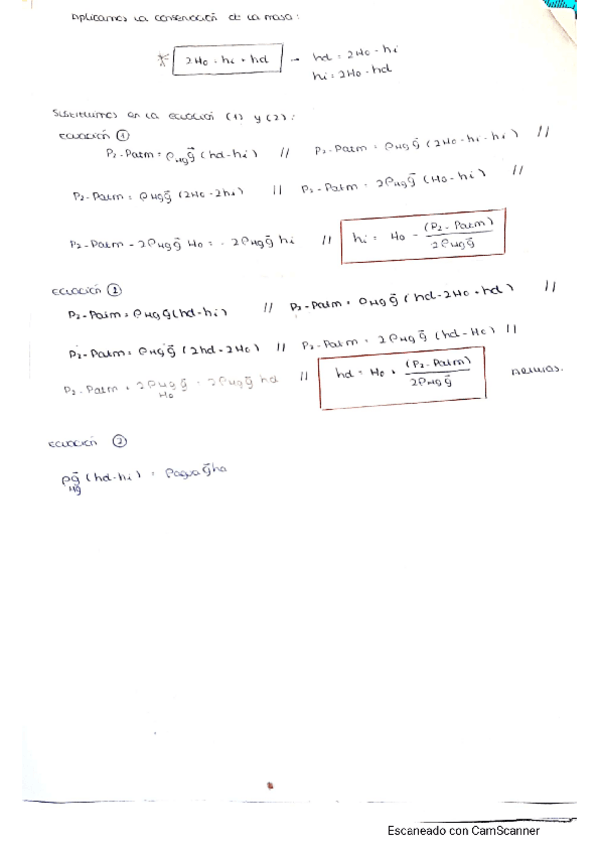 Aplicamos la conservación de la masa:
* 2H₀ = hi + hd → hd = 2H₀ - hi
hi = 2H₀ - hd
Sustituimos en la ecuación (1) y (2):
ecuación ①
P₂ - Patm = ρHg g⃗ (hd - hi) // P₂ - Patm = ρHg g⃗ (2H₀ - hi - hi) //
P₂ - Patm = ρHg g⃗ (2H₀ - 2hi) // P₂ - Patm = 2ρHg g⃗ (H₀ - hi) //
P₂ - Patm - 2ρHg g⃗ H₀ = - 2ρHg g⃗ hi // hi = H₀ - (P₂ - Patm) / 2ρHg g⃗
ecuación ②
P₂ - Patm = ρHg g⃗ (hd - hi) // P₂ - Patm = ρHg g⃗ (hd - 2H₀ + hd) //
P₂ - Patm = ρHg g⃗ (2hd - 2H₀) // P₂ - Patm = 2ρHg g⃗ (hd - H₀) //
P₂ - Patm + 2ρHg g⃗ H₀ = 2ρHg g⃗ hd // hd = H₀ + (P₂ - Patm) / 2ρHg g⃗
ecuación ②
ρHg g⃗ (hd - hi) = ρagua g⃗ ha
Escaneado con CamScanner